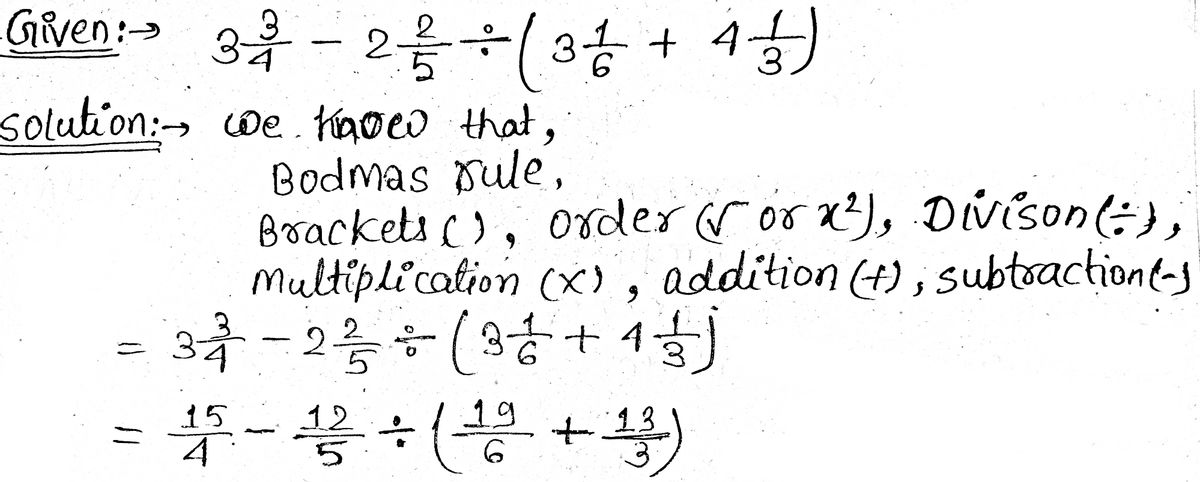 Given:→ 3 3/4 - 2 2/5 ÷ ( 3 1/6 + 4 1/3 )
Solution:→ we know that,
Bodmas rule,
Brackets ( ), order (√ or x²), Divison (÷),
multiplication (x), addition (+), subtraction (-)
= 3 3/4 - 2 2/5 ÷ ( 3 1/6 + 4 1/3 )
= 15/4 - 12/5 ÷ ( 19/6 + 13/3 )